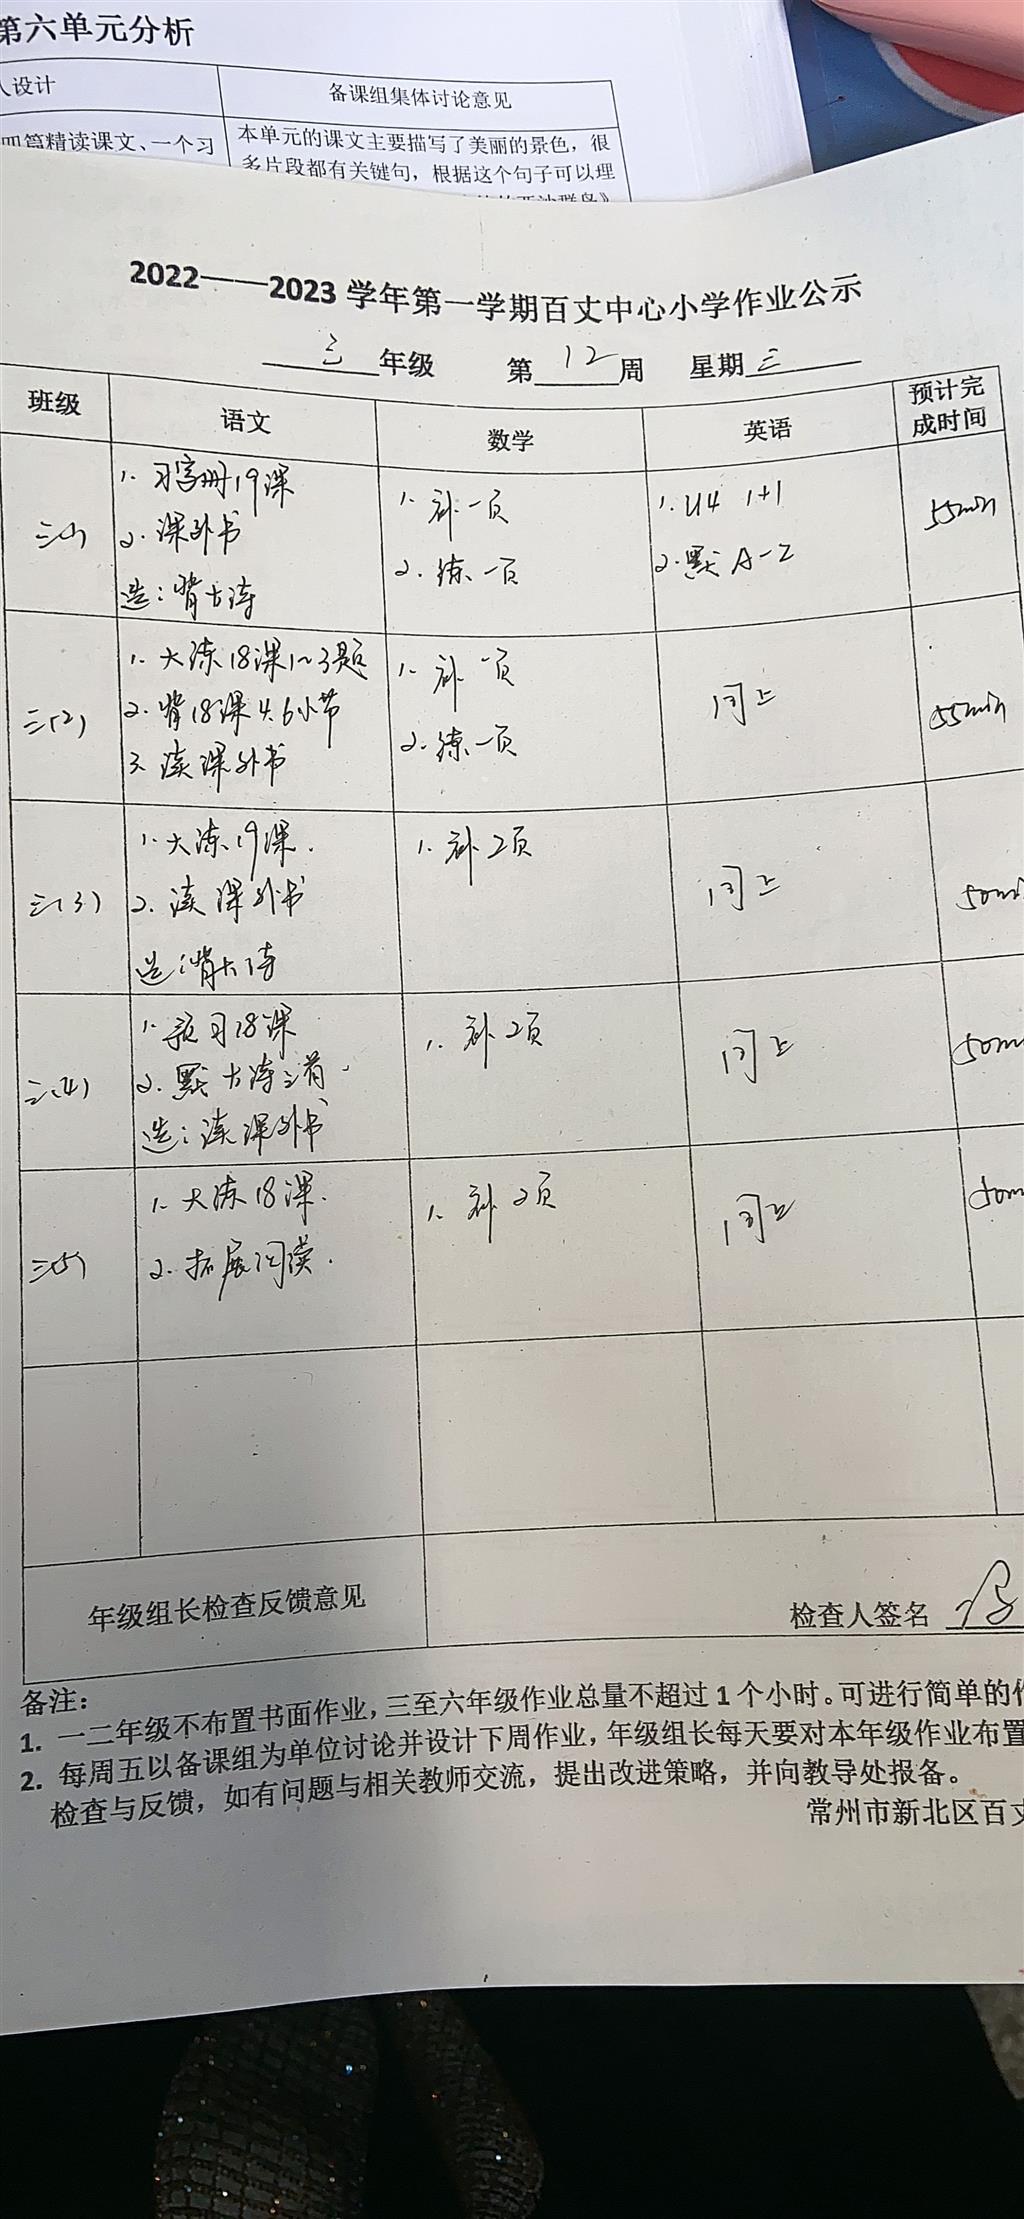 第六单元分析
人设计
备课组集体讨论意见
四篇精读课文、一个习
本单元的课文主要描写了美丽的景色，很
多片段都有关键句，根据这个句子可以理
2022——2023学年第一学期百丈中心小学作业公示
三年级 第12周 星期三
班级 语文 数学 英语 预计完成时间
三(1)
1. 习字册19课
2. 课外书
选：背古诗
1. 补一页
2. 练一页
1. U4 1+1
2. 默A-Z
55min
三(2)
1. 大练18课1~3题
2. 背18课4.6小节
3. 读课外书
1. 补一页
2. 练一页
同上
55min
三(3)
1. 大练19课.
2. 读课外书
选：背古诗
1. 补2页
同上
50mi
三(4)
1. 预习18课
2. 默古诗三首.
选：读课外书
1. 补2页
同上
50m
三(5)
1. 大练18课.
2. 拓展阅读.
1. 补2页
同上
50m
年级组长检查反馈意见
检查人签名
备注：
1. 一二年级不布置书面作业，三至六年级作业总量不超过1个小时。可进行简单的作
2. 每周五以备课组为单位讨论并设计下周作业，年级组长每天要对本年级作业布置
检查与反馈，如有问题与相关教师交流，提出改进策略，并向教导处报备。
常州市新北区百丈